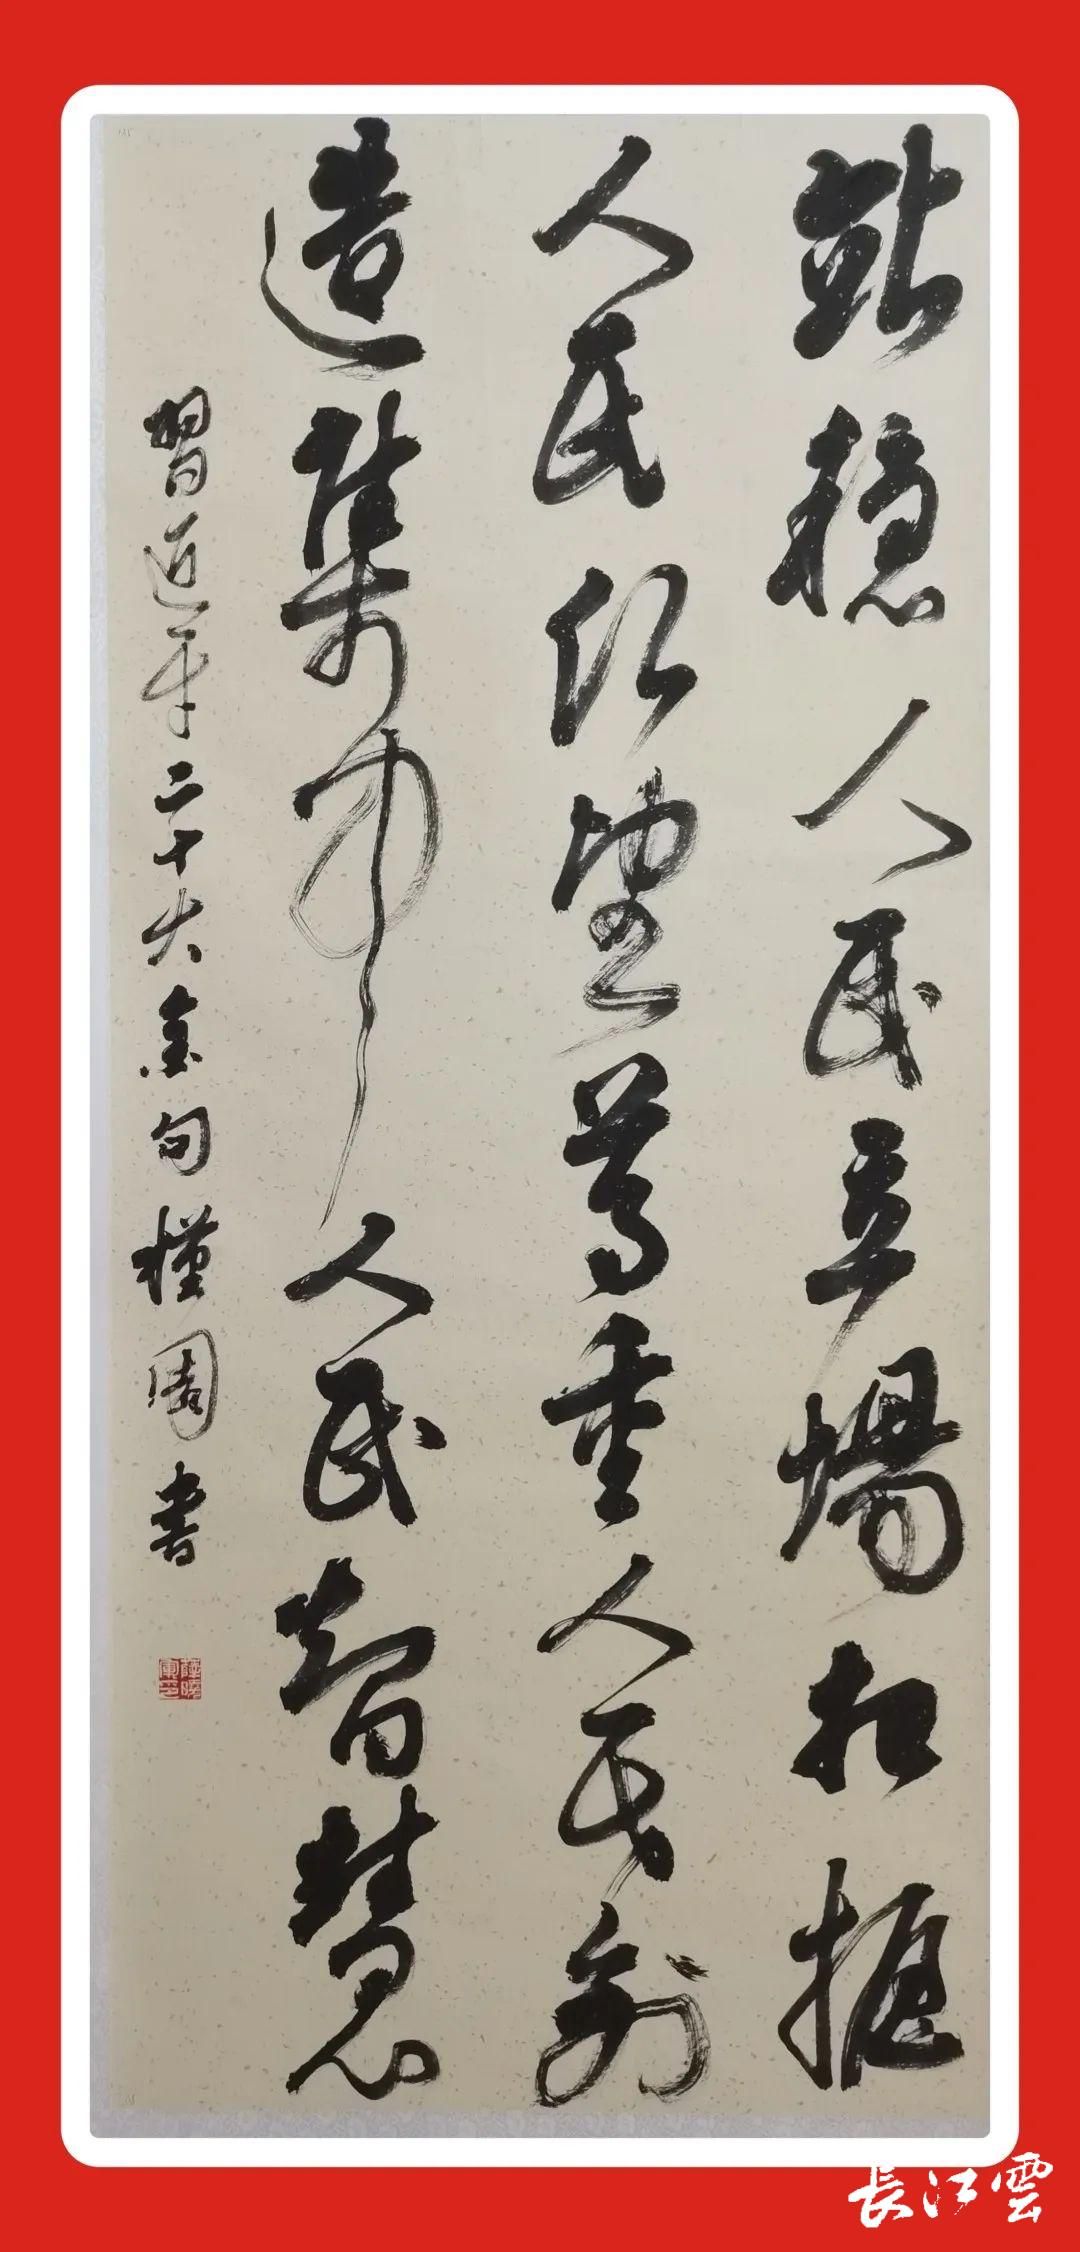 站穩人民立場把握
人民願望尊重人民創
造集中人民智慧
習近平二十大金句槿周書
長江雲